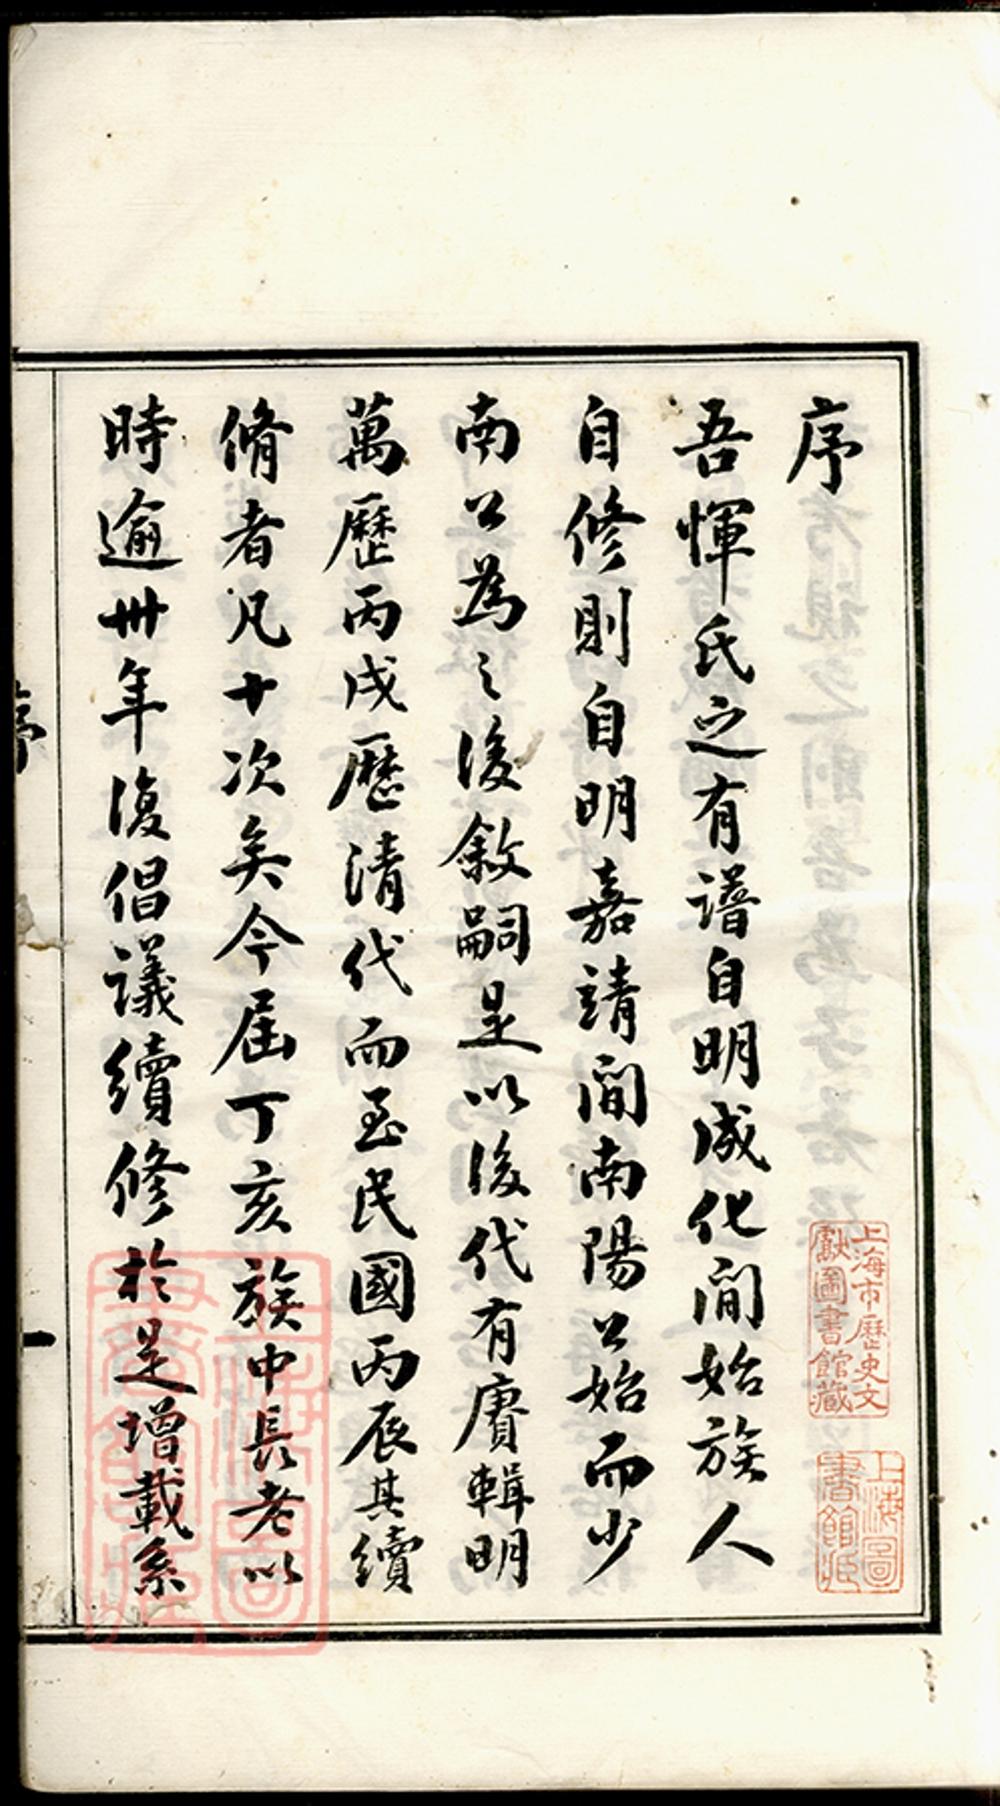 序
吾惲氏之有譜自明成化間始族人
自修則自明嘉靖間南陽公始而少
南公為之後敘嗣是以後代有賡輯明
萬歷丙戌歷清代而至民國丙辰其續
脩者凡十次矣今屆丁亥族中長老以
時逾卅年復倡議續修於是增載系
序
一
上海市歷史文
獻圖書館藏
上海圖
書館藏
上海圖
書館藏